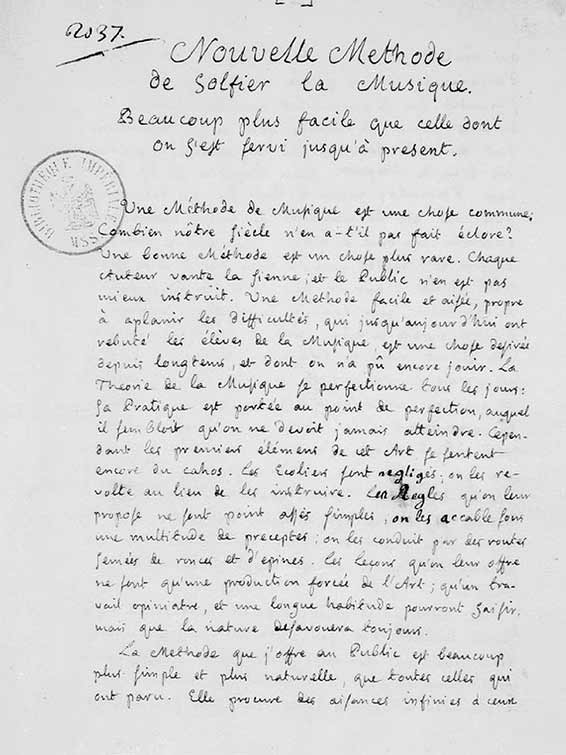 2037.
Nouvelle Methode
de Solfier la Musique.
Beaucoup plus facile que celle dont
on s'est servi jusqu'à present.
BIBLIOTHEQUE IMPERIALE
MSS
Une Méthode de Musique est une chose commune;
Combien nôtre siécle n'en a-t'il pas fait éclore?
Une bonne Méthode est un chose plus rare. Chaque
Auteur vante la sienne; et le Public n'en est pas
mieux instruit. Une Methode facile et aisée, propre
à aplanir les difficultés, qui jusqu'aujourd'hui ont
rebuté les élèves de la Musique, est une chose desirée
depuis longtems, et dont on n'a pû encore jouir. La
Theorie de la Musique se perfectionne tous les jours:
Sa Pratique est portée au point de perfection, auquel
il sembloit qu'on ne devoit jamais atteindre. Cepen-
dant les premiers élémens de cet Art se sentent
encore du cahos. Les Ecoliers sont negligés; on les re-
volte au lieu de les instruire. Les Regles qu'on leur
propose ne sont point assés simples, on les accable sous
une multitude de preceptes; on les conduit par des routes
semées de ronces et d'epines. Les leçons qu'on leur offre
ne sont qu'une production forcée de l'Art; qu'un tra-
vail opiniatre, et une longue habitude pourront saisir,
mais que la nature desavouera toujours.
La Methode que j'offre au Public est beaucoup
plus simple et plus naturelle, que toutes celles qui
ont paru. Elle procure des aisances infinies à ceux